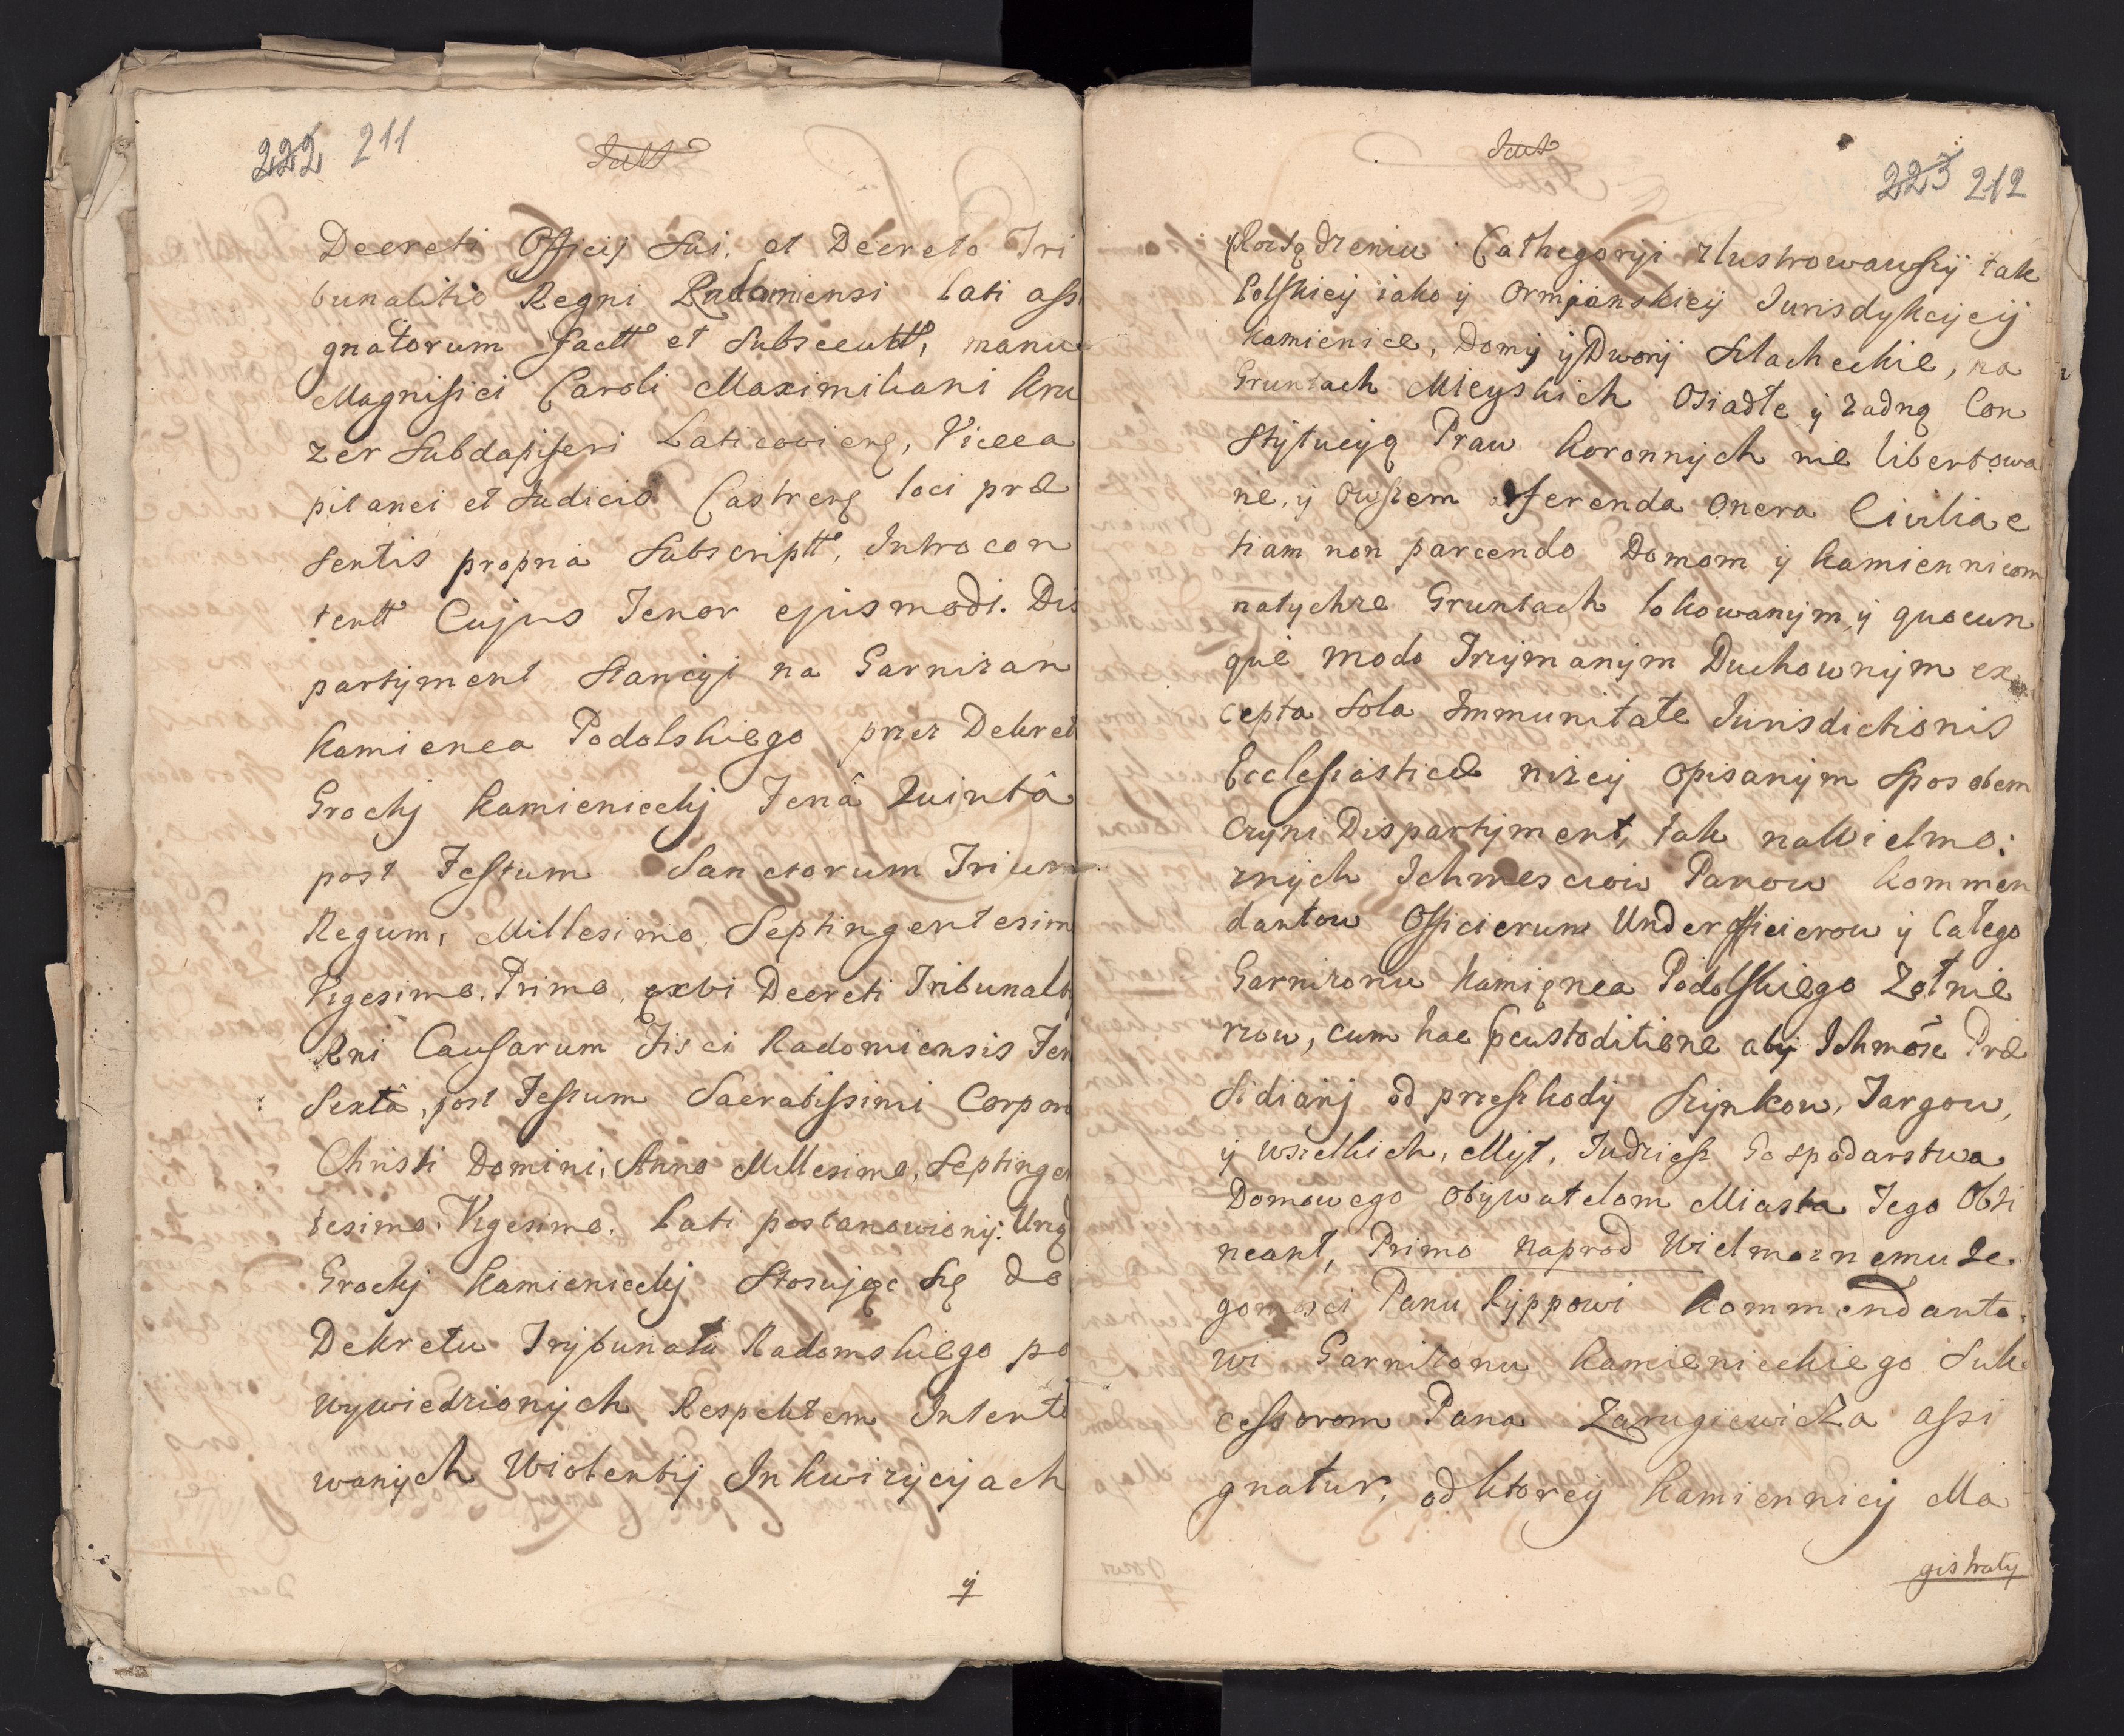 222 211
Decreti Officij Sui, et Decreto Tri
bunalitio Regni Radomiensi lati assi
gnatorum fact et Subsecutt, manu
Magnifici Caroli Maximiliani Kru
zer Subdapiferi Laticovien, Viceca
pitanei et Judicis Castren loci præ
sentis propria Subscriptt, Introcon
tentt Cujus Tenor ejusmodi. Dis
partyment Stancyi na Garnizan
Kamienca Podolskiego przez Dekret
Grocky Kamieniecky Feriâ Quintâ
post Festum Sanctorum Trium
Regum, Millesimo Septingentesim
Vigesimo, Primo, exvi Decreti Tribunalit
Rni Causarum Fisci Radomiensis Fer
Sextâ, post Festum Sacratissimi Corpor
Christi Domini, Anno Millesimo, Septingen
tesimo, Vigesimo, lati postanowiony: Urząd
Grocky Kamieniecky Stosując Się do
Dekretu Trybunału Radomskiego po
wywiedzionych Respektem Intento
wanych Wiolentij Inkwizycyjach
y
223 212
y Rozsądzeniu Cathegoryi zlustrowawszy tak
Polskiey iako y Ormjanskiey Jurisdykcycij
Kamienice, Domy y Dwory Szlacheckie, na
Gruntach Mieyskich Osiadłe y żadną Con
stytucyą Praw Koronnych nie libertowa
ne, y Owszem ferenda Onera Civilia e
tiam non parcendo Domom y Kamiennicom
natychże Gruntach lokowanym, y quocun
que modo Trzymanym Duchownym ex
cepta Sola Immunitate Jurisdictionis
Ecclesiasticæ niżey Opisanym Sposobem
Czyni Dispartyment, tak naWielmo:
żnych Ichmosciow Panow Kommen
dantow Officierum Underofficierow y Całego
Garnizonu Kamięnca Podolskiego Zołnie
rzow, cum hac custoditione aby Ichmosc Præ
sidiary od przeszkody Szynkow, Targow,
y wszelkich, Myt, Tudziesz Gospodarstwa
Domowego Obywatelom Miasta Tego Obti
neant, Primo Naprod Wielmożnemu Je
gomosci Panu Ryppowi Kommendanto:
wi Garnizonu Kamienieckiego Suk
cessorom Pana Zarugiewicza assi
gnatur, od ktorey Kamiennicy Ma
gistraty